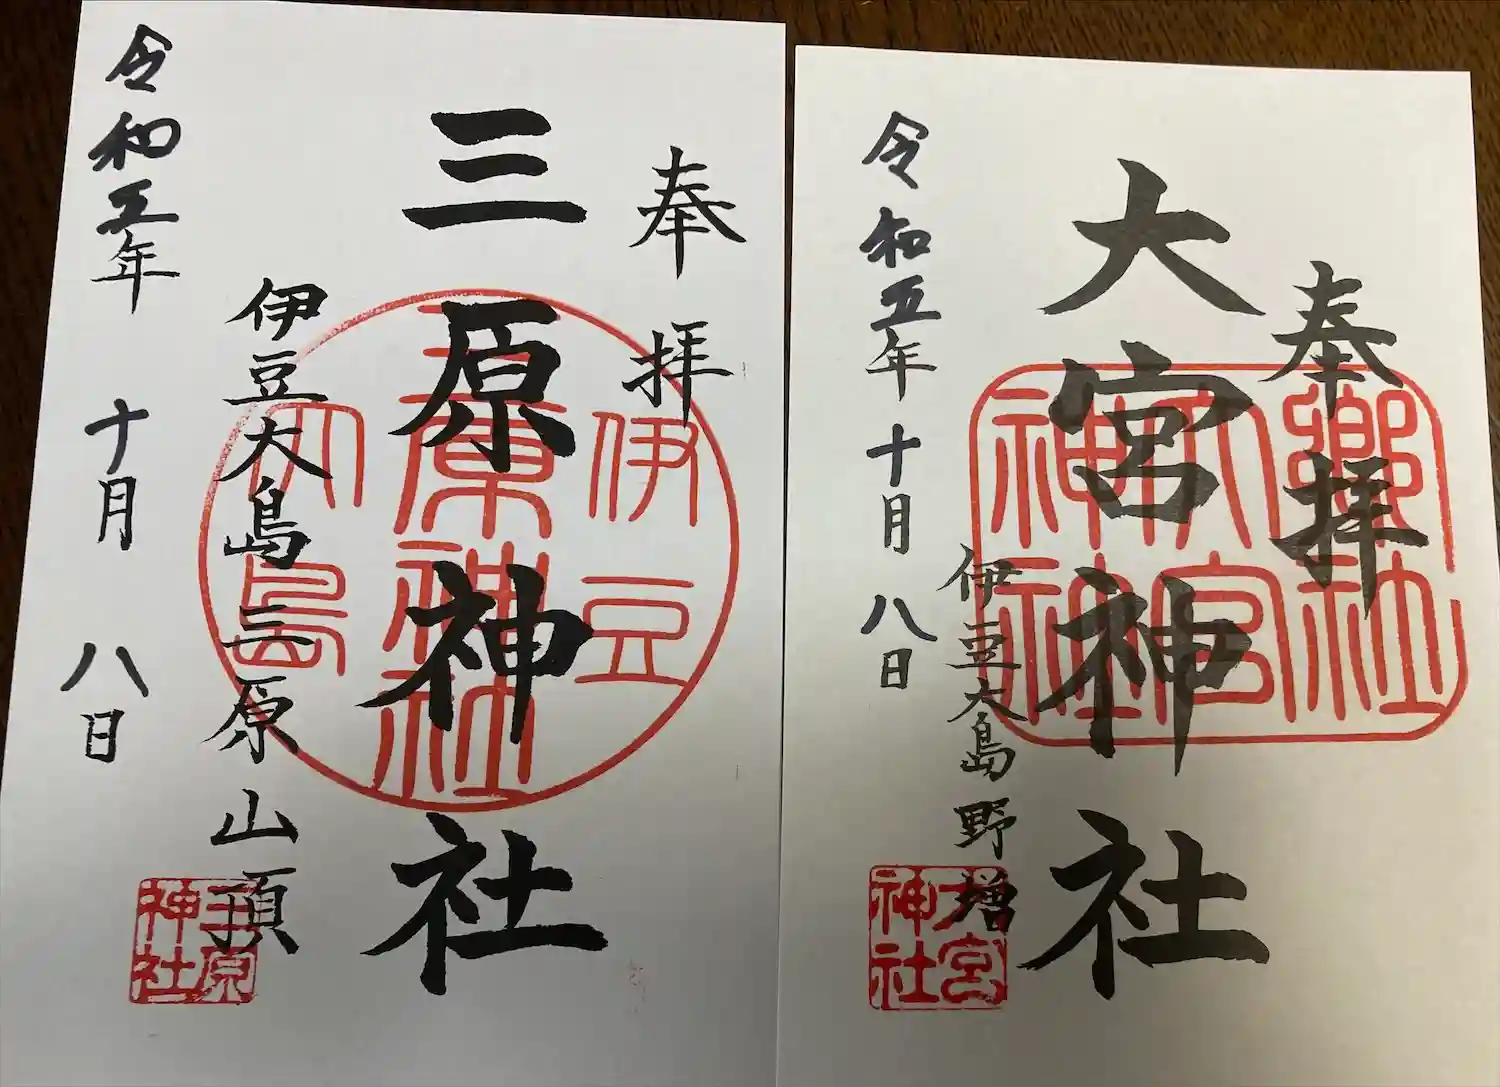 奉拝
三原神社
伊豆大島三原山頂
令和五年 十月 八日
伊豆
三原神社
大島
三原
神社
奉拝
大宮神社
伊豆大島野増
令和五年十月八日
郷社
大宮
神社
大宮
神社